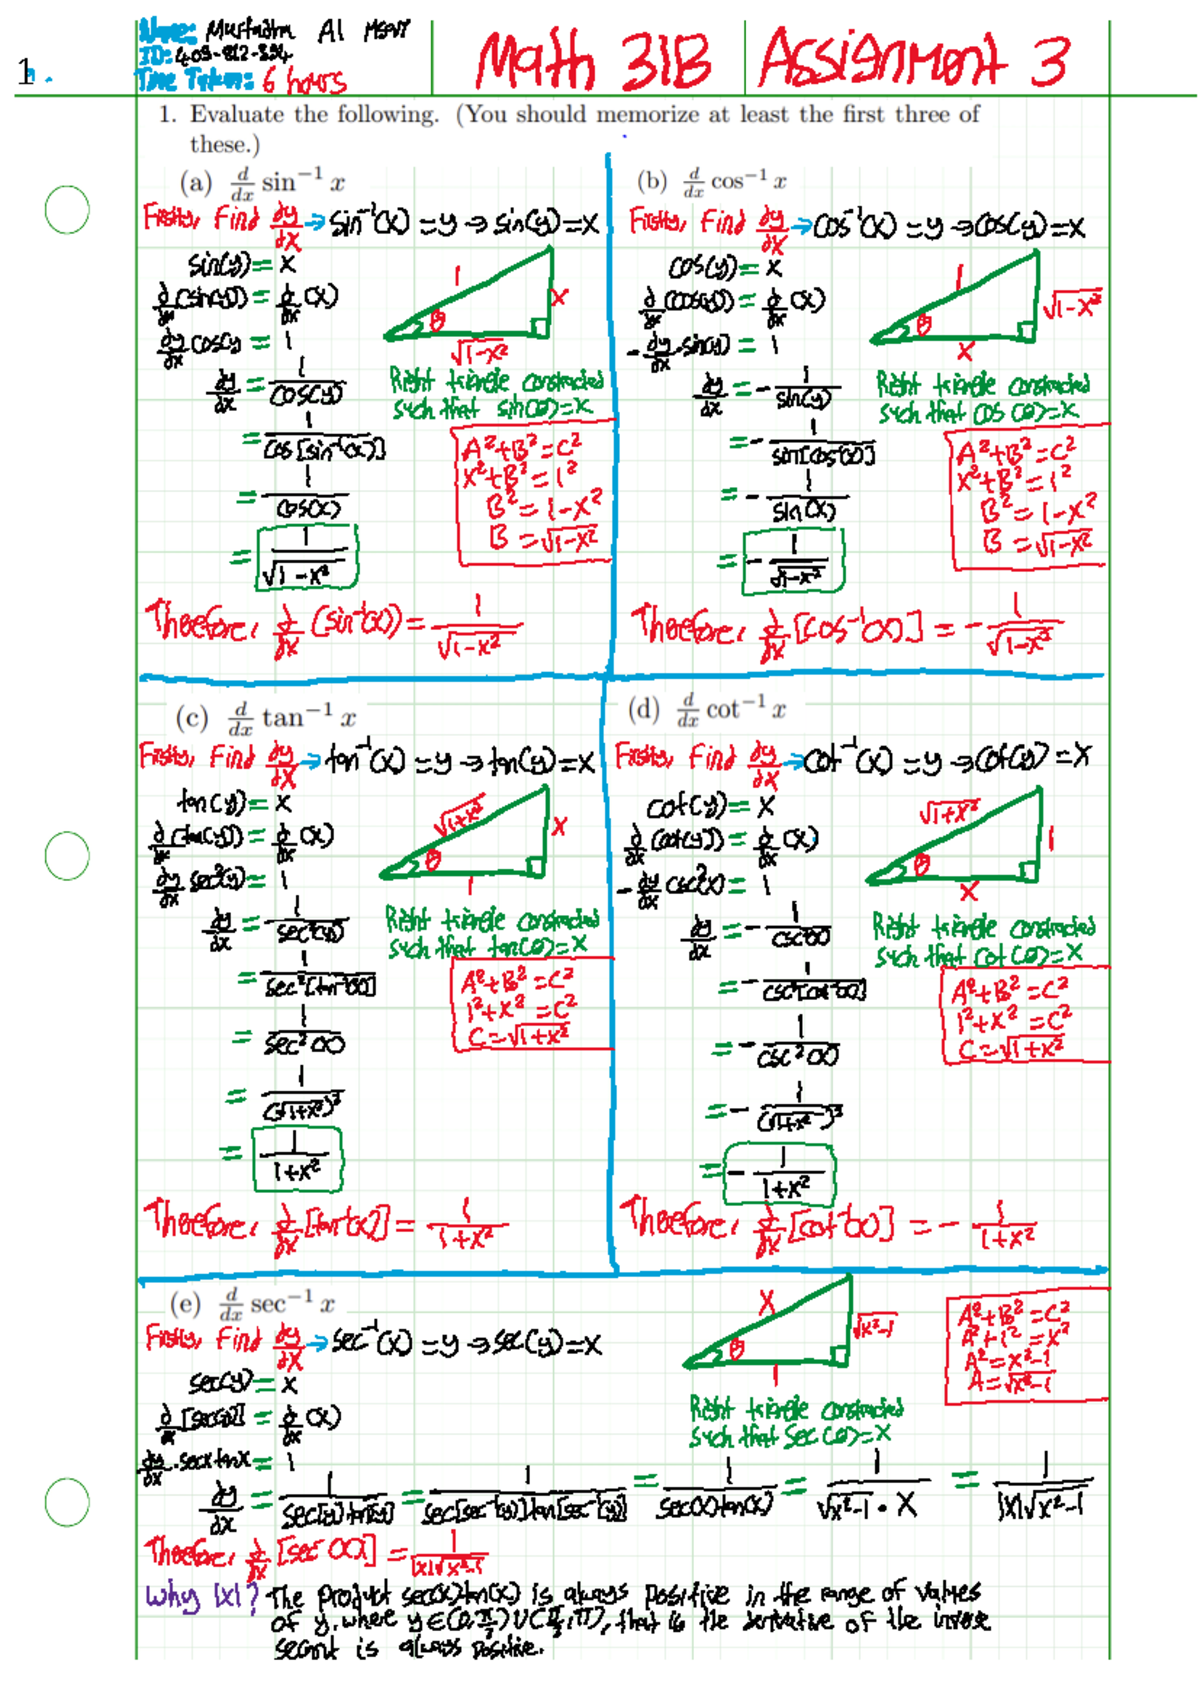 Name: Murtadha Al
ID: 405-812-334
Time Taken: 6 hours
Math 31B Assignment 3
1
1. Evaluate the following. (You should memorize at least the first three of
these.)
(a) d/dx sin⁻¹ x
Firstly, Find dy/dx → sin⁻¹(x) = y → sin(y) = x
sin(y) = x
d/dx (sin(y)) = d/dx (x)
dy/dx cos(y) = 1
dy/dx = 1/cos(y)
= 1/cos[sin⁻¹(x)]
= 1/cos(x)
= 1/√(1-x²)
1
x
θ
√(1-x²)
Right triangle constructed
such that sin(θ)=x
A²+B²=C²
x²+B²=1²
B²=1-x²
B=√(1-x²)
Therefore, d/dx (sin⁻¹(x)) = 1/√(1-x²)
(b) d/dx cos⁻¹ x
Firstly, Find dy/dx → cos⁻¹(x) = y → cos(y) = x
cos(y) = x
d/dx (cos(y)) = d/dx (x)
- dy/dx sin(y) = 1
dy/dx = - 1/sin(y)
= - 1/sin[cos⁻¹(x)]
= - 1/sin(x)
= - 1/√(1-x²)
1
√(1-x²)
θ
x
Right triangle constructed
such that cos(θ)=x
A²+B²=C²
x²+B²=1²
B²=1-x²
B=√(1-x²)
Therefore, d/dx [cos⁻¹(x)] = - 1/√(1-x²)
(c) d/dx tan⁻¹ x
Firstly, Find dy/dx → tan⁻¹(x) = y → tan(y) = x
tan(y) = x
d/dx (tan(y)) = d/dx (x)
dy/dx sec²(y) = 1
dy/dx = 1/sec²(y)
= 1/sec²[tan⁻¹(x)]
= 1/sec²(x)
= 1/(√(1+x²))²
= 1/(1+x²)
√(1+x²)
x
θ
1
Right triangle constructed
such that tan(θ)=x
A²+B²=C²
1²+x²=C²
C=√(1+x²)
Therefore, d/dx [tan⁻¹(x)] = 1/(1+x²)
(d) d/dx cot⁻¹ x
Firstly, Find dy/dx → cot⁻¹(x) = y → cot(y) = x
cot(y) = x
d/dx (cot(y)) = d/dx (x)
- dy/dx csc²(x) = 1
dy/dx = - 1/csc²(x)
= - 1/csc²[cot⁻¹(x)]
= - 1/csc²(x)
= - 1/(√(1+x²))²
= - 1/(1+x²)
√(1+x²)
1
θ
x
Right triangle constructed
such that cot(θ)=x
A²+B²=C²
1²+x²=C²
C=√(1+x²)
Therefore, d/dx [cot⁻¹(x)] = - 1/(1+x²)
(e) d/dx sec⁻¹ x
Firstly, Find dy/dx → sec⁻¹(x) = y → sec(y) = x
sec(y) = x
d/dx [sec(y)] = d/dx (x)
dy/dx · secx tanx = 1
x
√(x²-1)
θ
1
Right triangle constructed
such that sec(θ)=x
A²+B²=C²
A²+1²=x²
A²=x²-1
A=√(x²-1)
dy/dx = 1/(sec[y]tan[y]) = 1/(sec[sec⁻¹(y)]tan[sec⁻¹(y)]) = 1/(sec(x)tan(x)) = 1/(√(x²-1) · x) = 1/(|x|√(x²-1))
Therefore, d/dx [sec⁻¹(x)] = 1/(|x|√(x²-1))
Why |x|? The product sec(x)tan(x) is always positive in the range of values
of y, where y∈(0,π/2)∪(π/2,π), that is the derivative of the inverse
secant is always positive.